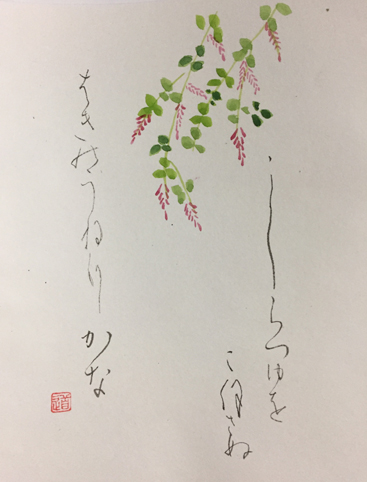 しらつゆを
こほさぬ
はきのうねりかな